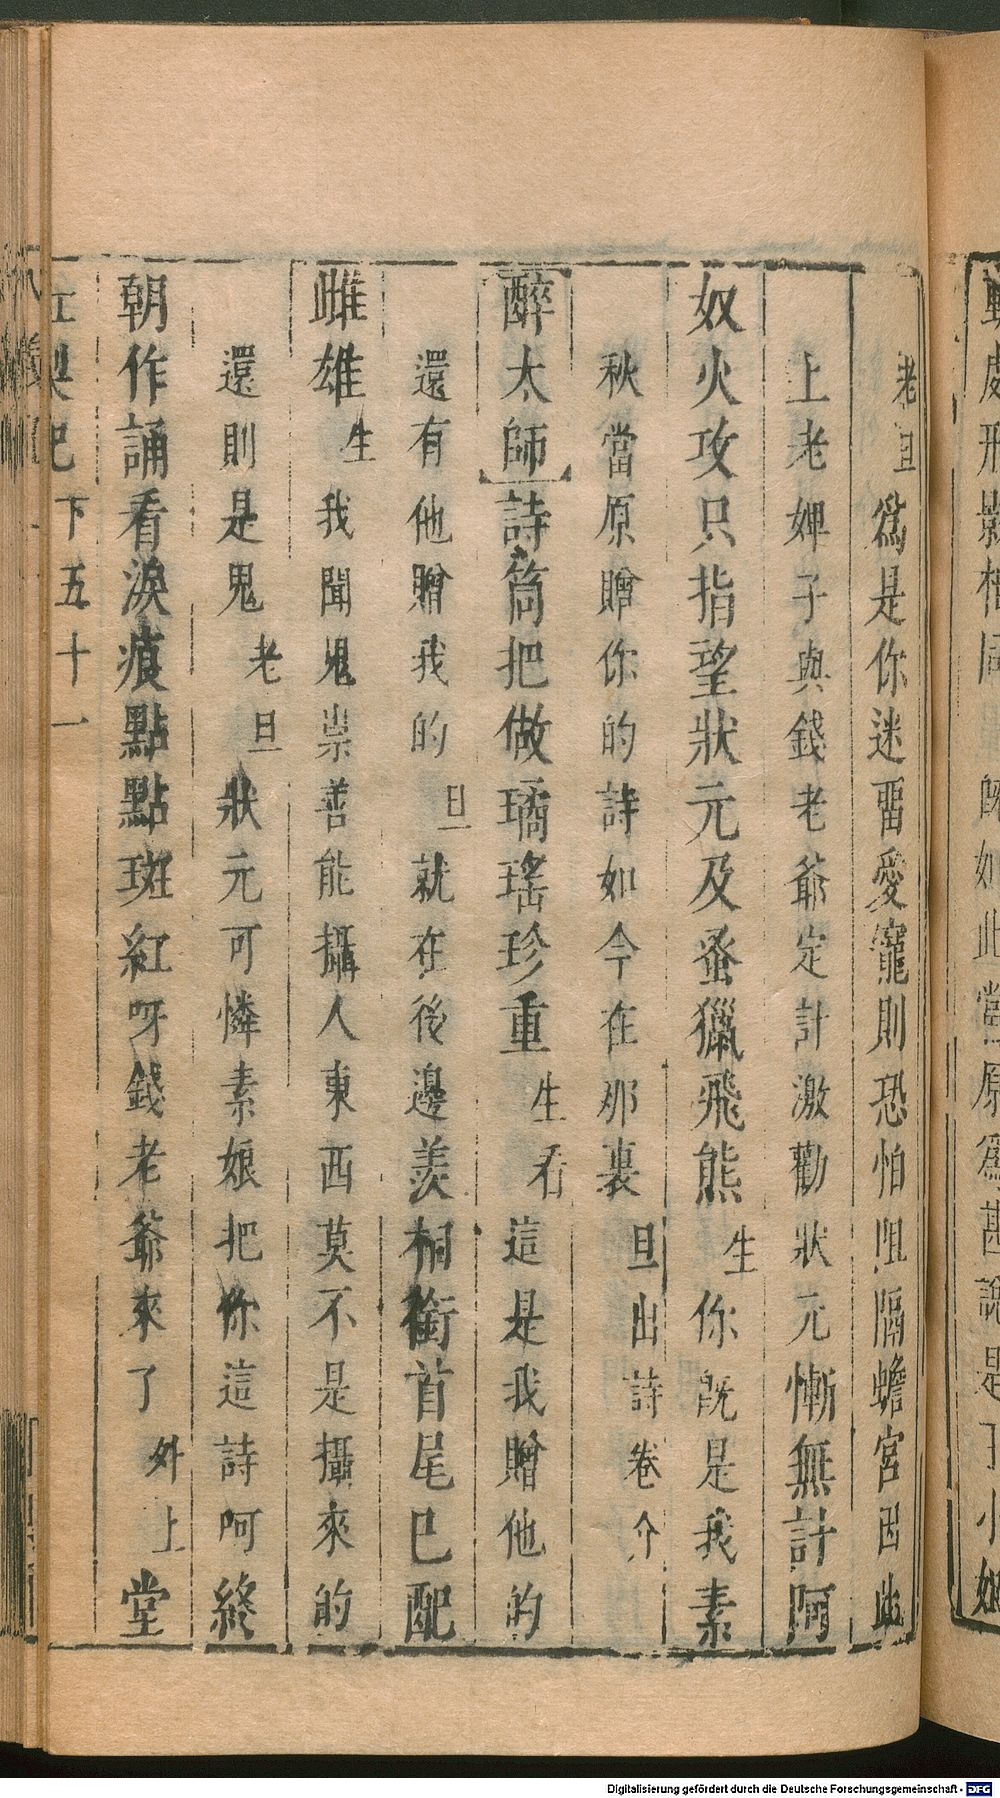 老旦爲是你迷畱愛寵則恐怕阻隔蟾宮因此
上老婢子與錢老爺定計激勸狀元慚無計阿
奴火攻只指望狀元及蚤獵飛熊生你既是我素
秋當原贈你的詩如今在那裏旦出詩卷介
醉太師詩筒把做璚瑤珍重生看這是我贈他的
還有他贈我的旦就在後邊羨相銜首尾巳配
雌雄生我聞鬼祟善能攝人東西莫不是攝來的
還則是鬼老旦狀元可憐素娘把你這詩呵終
朝作誦看淚痕點點斑紅呀錢老爺來了外上堂
下五十一
形影相同 既如此當原爲甚說是王小姐
Digitalisierung gefördert durch die Deutsche Forschungsgemeinschaft - DFG